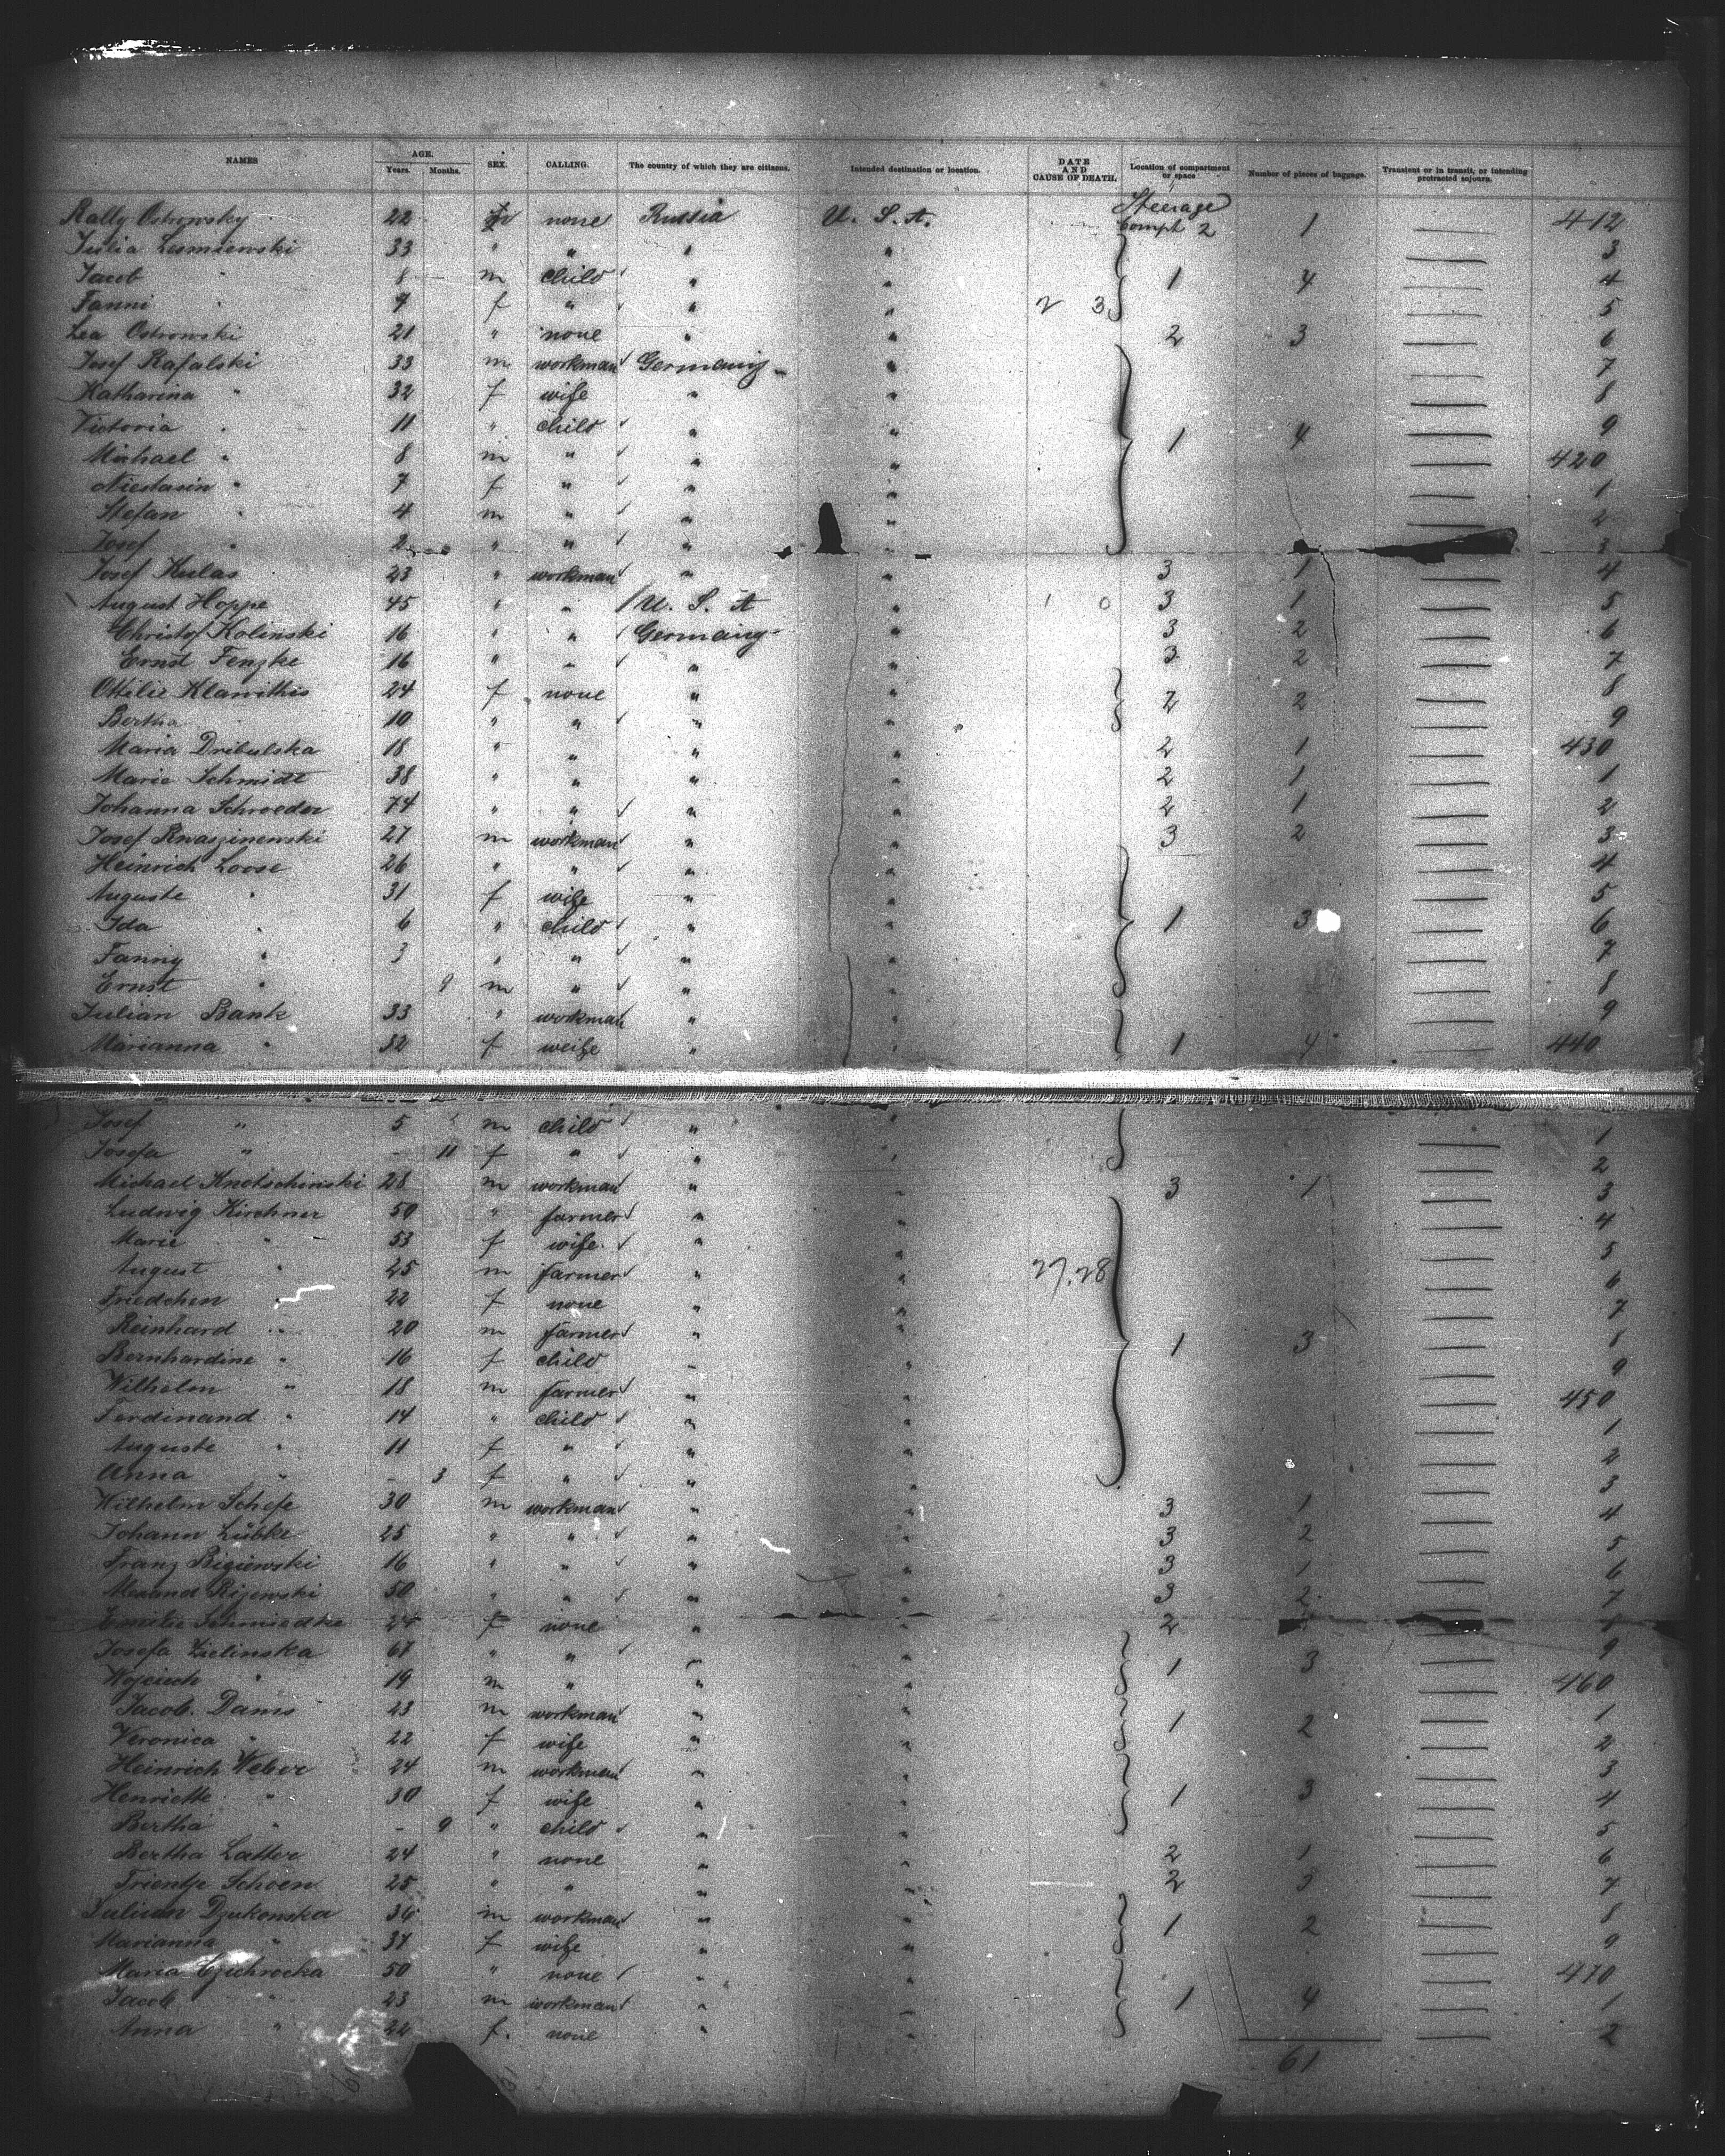 NAMES AGE. Years. Months. SEX. CALLING. The country of which they are citizens. Intended destination or location. DATE AND CAUSE OF DEATH. Location of compartment or space Number of pieces of baggage. Transient or in transit, or intending protracted sojourn.
Steerage
Rally Ostrowsky 22 f none Russia U. S. A. Compt 2 1 — 412
Julia Lesmiewski 33 " " " " — 3
Jacob " 8 m child " " 1 4 — 4
Fanni " 9 f " " " 2 3 — 5
Lea Ostrowski 21 " none " " 2 3 — 6
Josef Rafalski 33 m workman Germany " — 7
Katharina " 32 f wife " " — 8
Victoria " 11 " child " " 1 4 — 9
Michael " 8 m " " " — 420
" 7 f " " " — 1
Stefan " 4 m " " " — 2
Josef " 2 " " " " 3
Josef Kulas 23 " workman " " 3 1 — 4
August Hoppe 45 " " U. S. A " 1 0 3 1 — 5
Christof Kolinski 16 " " Germany " 3 2 — 6
Ernst Fenzke 16 " " " " 3 2 — 7
Ottilie Klawithis 24 f none " " 2 2 — 8
Bertha " 10 " " " " — 9
Maria Dribulska 18 " " " " 2 1 — 430
Marie Schmidt 38 " " " " 2 1 — 1
Johanna Schroeder 74 " " " " 2 1 — 2
Josef 27 m workman " " 3 2 — 3
Heinrich Loose 26 " " " " — 4
Auguste " 31 f wife " " — 5
Ida " 6 " child " " 1 3 — 6
Fanny " 3 " " " " — 7
Ernst " 9 m " " " — 8
Julian Bank 33 " workman " " — 9
Marianna " 32 f weife " " 1 4 — 440
Josef " 5 m child " " — 1
Josefa " - 11 f " " " — 2
Michael Knotschinski 28 m workman " " 3 1 — 3
Ludwig Kirchner 50 " farmer " " — 4
Marie " 53 f wife " " — 5
August " 25 m farmer " " 27.28 — 6
Friedchen " 22 f none " " — 7
Reinhard " 20 m farmer " " 1 3 — 8
Bernhardine " 16 f child " " — 9
Wilhelm " 18 m farmer " " — 450
Ferdinand " 14 " child " " — 1
Auguste " 11 f " " " — 2
Anna " - 3 f " " " — 3
Wilhelm Schefe 30 m workman " " 3 1 — 4
Johann Lübke 25 " " " " 3 2 — 5
Franz 16 " " " " 3 1 — 6
Rizewski 50 " " " " 3 2 — 7
Emilie Schmiedke 24 f none " " 2
Josefa Zielinska 67 " " " " — 9
Wojciech " 19 m " " " 1 3 — 460
Jacob. Dams 23 m workman " " — 1
Veronica " 22 f wife " " 1 2 — 2
Heinrich Weber 24 m workman " " — 3
Henriette " 30 f wife " " 1 3 — 4
Bertha " - 9 " child " " — 5
Bertha Latter 24 " none " " 2 1 — 6
Trientje Schoen 25 " " " " 2 3 — 7
Julian Dzukonska 36 m workman " " 1 2 — 8
Marianna " 37 f wife " " — 9
Maria Czichrocka 50 " none " " — 470
Jacob " 23 m workman " " 1 4 — 1
Anna " 24 f. none " " — 2
61